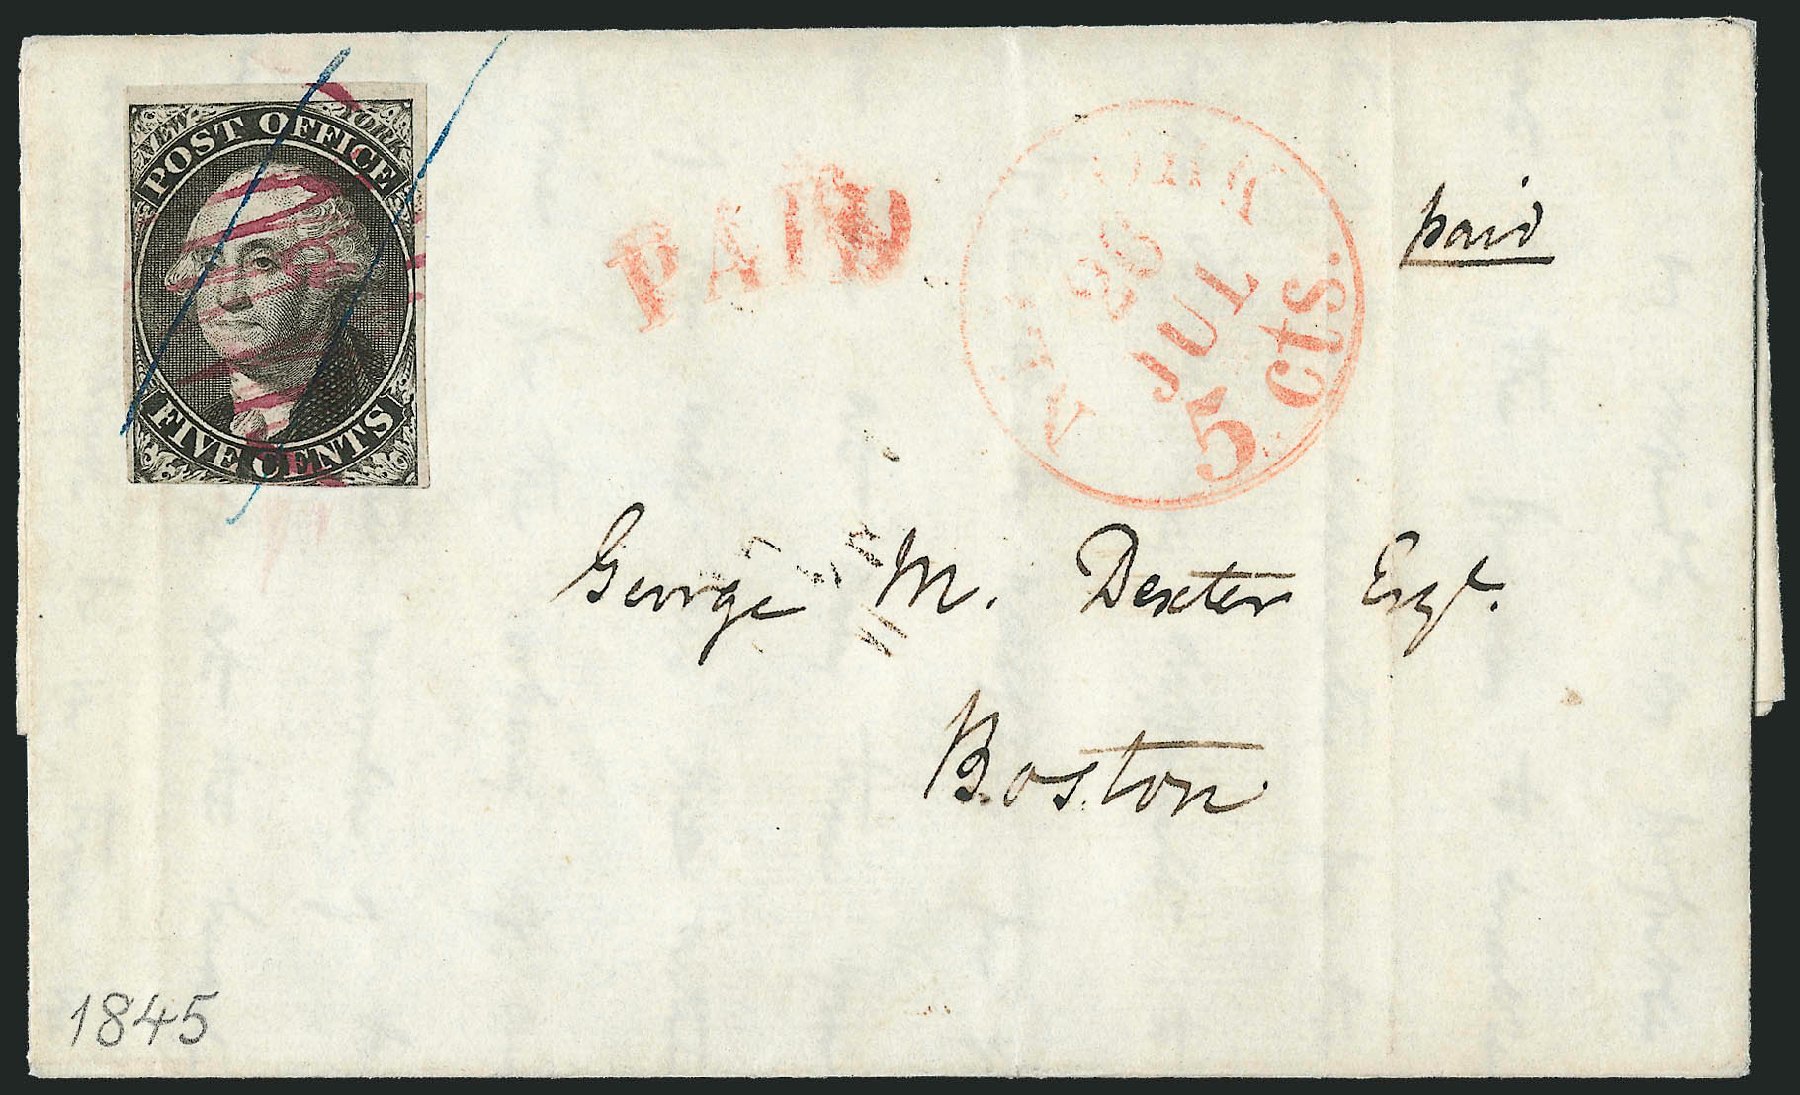 NEW YORK
POST OFFICE
FIVE CENTS
PAID
NEW-YORK
28
JUL
5 cts.
paid
George M. Dexter Esqr.
Boston
1845